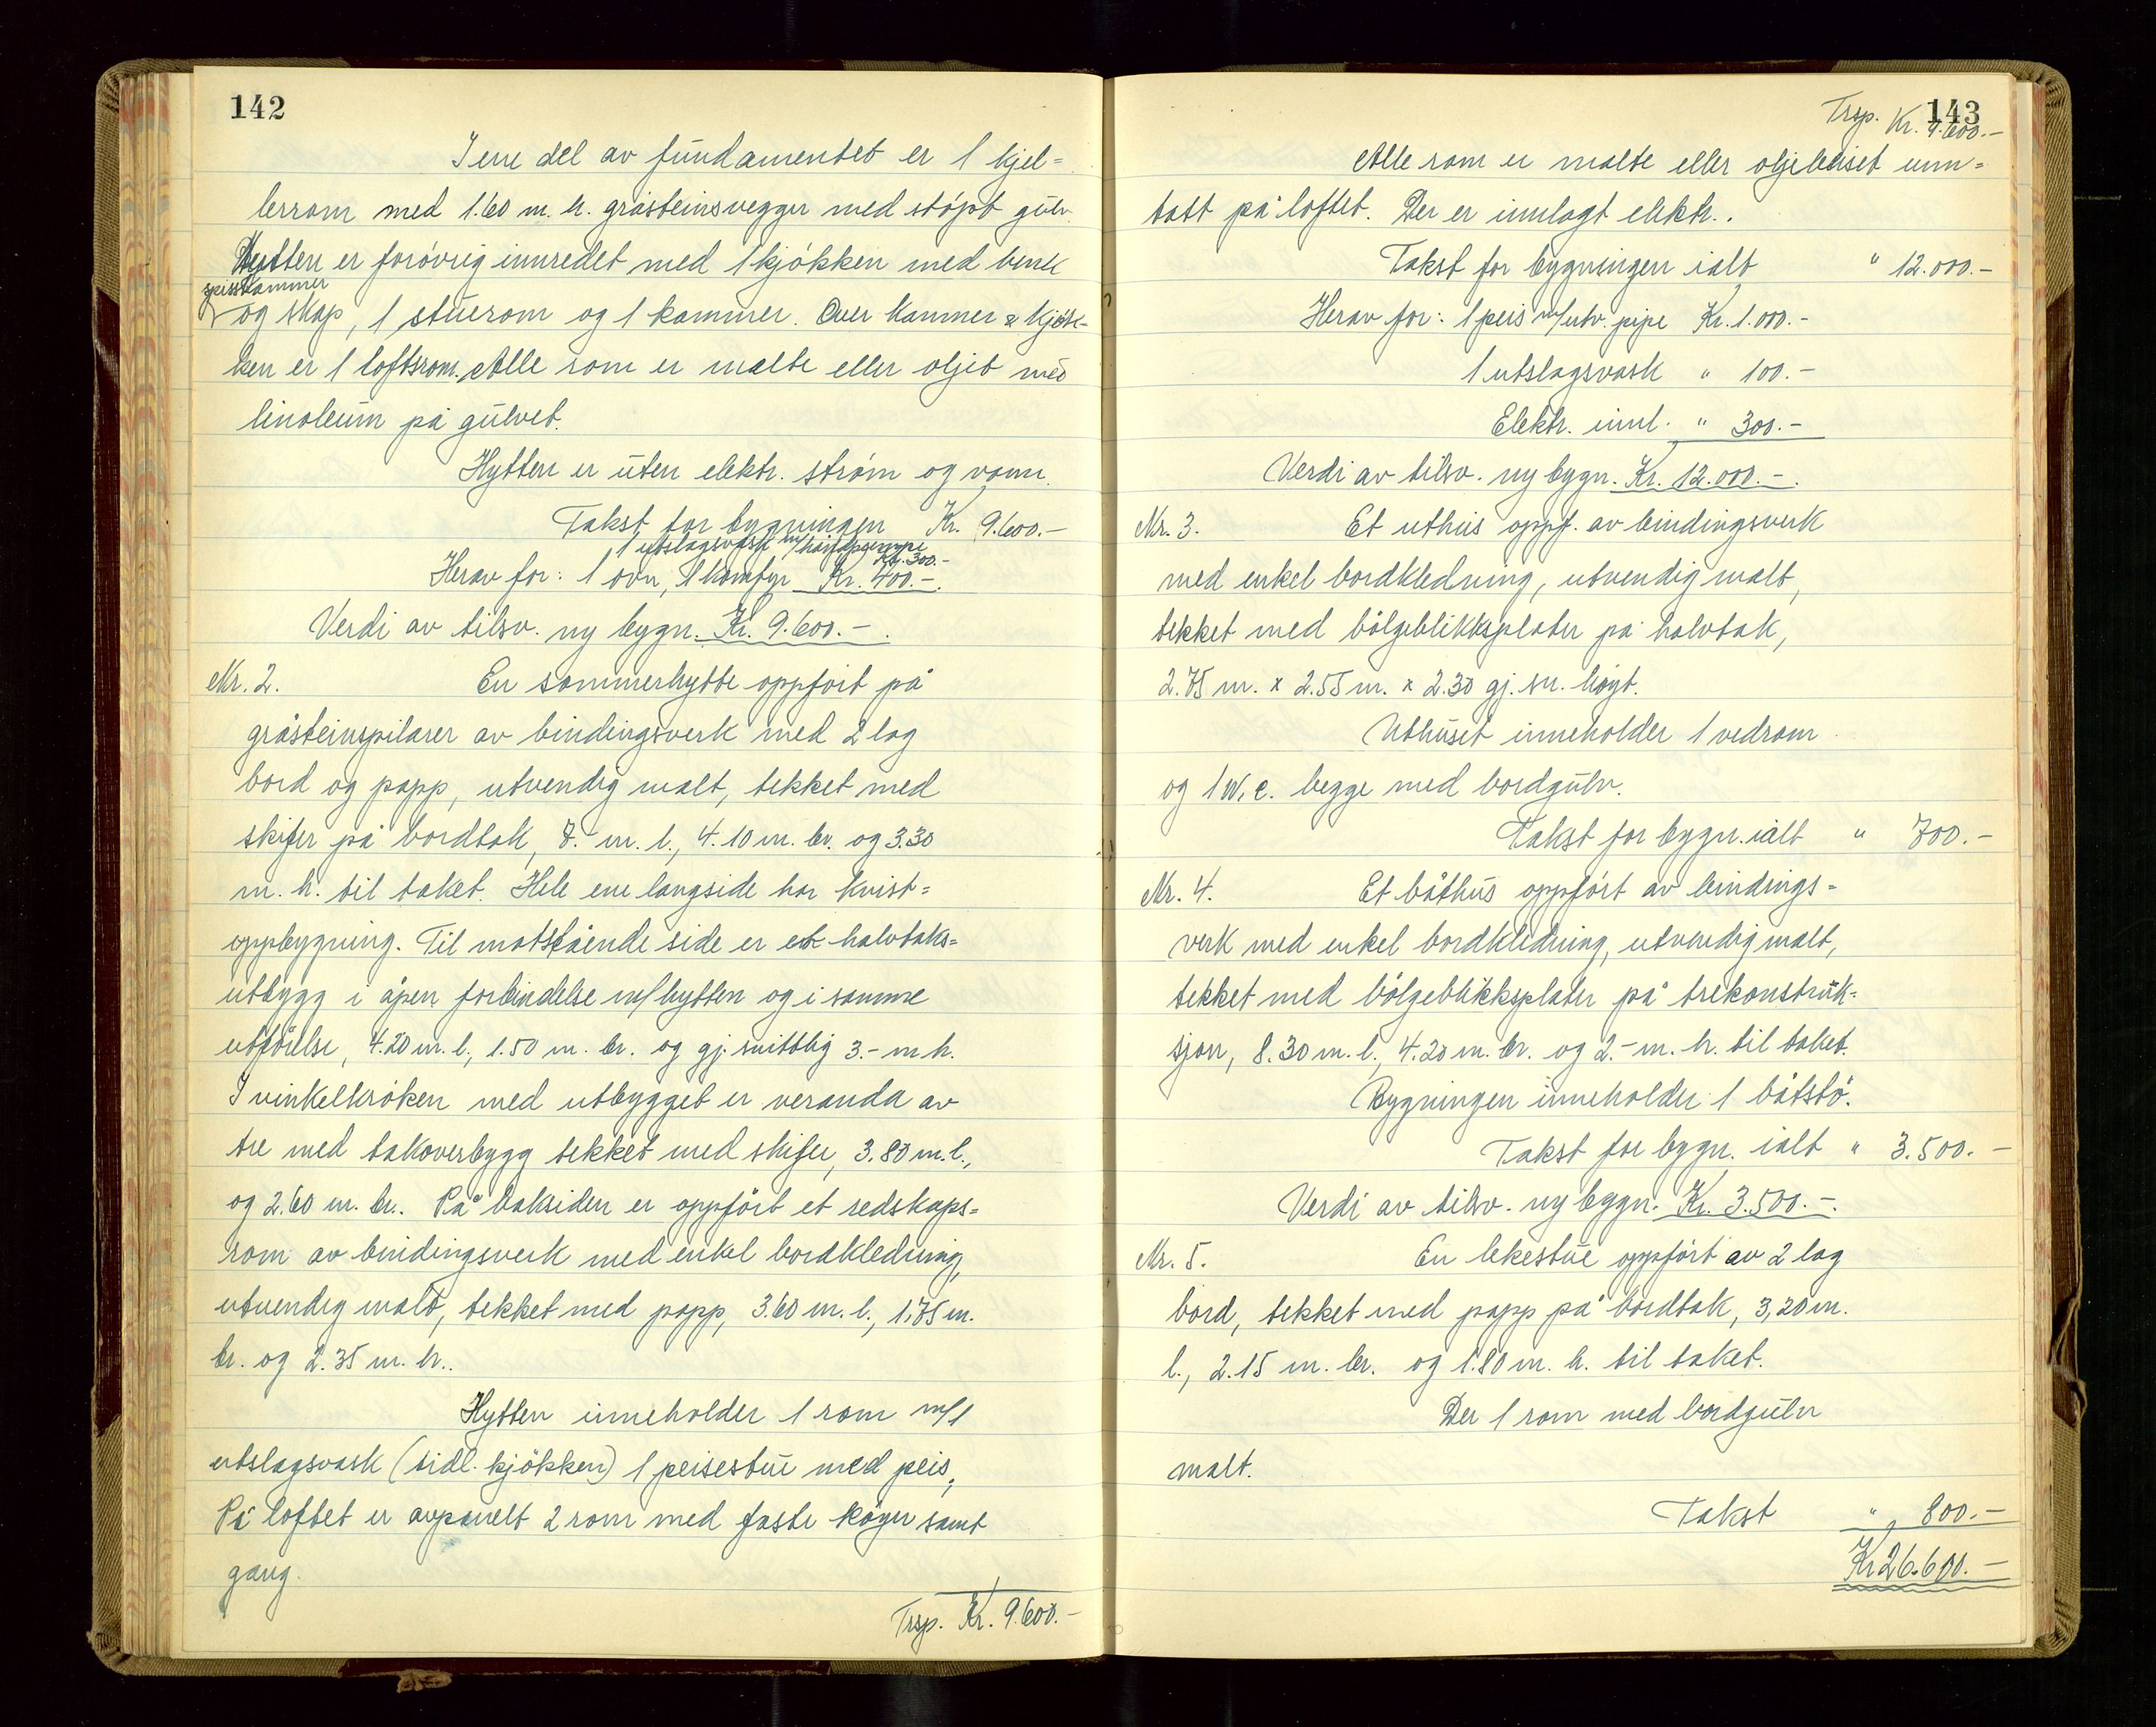 142
I ene del av fundamentet er 1 kjel=
lerrom med 1.60 m. h. gråsteinsvegger med støpt gulv.
Hytten er forøvrig innredet med 1 kjøkken med benk
spisskammer
og skap, 1 stuerom og 1 kammer. Over kammer & kjøk-
ken er 1 loftsrom. Alle rom er malte eller oljet med
linoleum på gulvet.
Hytten er uten elektr. strøm og vann.
Takst for bygningen Kr. 9.600.-
1 utslagsvask m/håndpumpe Kr. 300.-
Herav for: 1 ovn, 1 komfyr Kr. 400.-
Verdi av tilsv. ny bygn. Kr. 9.600.-.
Nr. 2. En sommerhytte oppført på
gråsteinspilarer av bindingsverk med 2 lag
bord og papp, utvendig malt, tekket med
skifer på bordtak, 7.- m. l., 4.10 m. br. og 3.30
m. h. til taket. Hele ene langside har kvist=
oppbygning. Til motstående side er et halvtaks=
utbygg i åpen forbindelse m/hytten og i samme
utførelse, 4.20 m. l., 1.50 m. br. og gj. snittlig 3.- m h.
I vinkelkroken med utbygget er veranda av
tre med takoverbygg tekket med skifer, 3.80 m. l.,
og 2.60 m. br. På baksiden er oppført et redskaps=
rom av bindingsverk med enkel bordkledning,
utvendig malt, tekket med papp, 3.60 m. l., 1.75 m.
br. og 2.35 m. h..
Hytten inneholder 1 rom m/1
utslagsvask (tidl. kjøkken) 1 peisestue med peis,
På loftet er avpanelt 2 rom med faste køyer samt
gang.
Trsp. Kr. 9.600.-
143
Trsp. Kr. 9.600.-
Alle rom er malte eller oljebeiset unn=
tatt på loftet. Der er innlagt elektr..
Takst for bygningen ialt " 12.000.-
Herav for: 1 peis m/utv. pipe Kr. 1.000.-
1 utslagsvask " 100.-
Elektr. innl. " 300.-
Verdi av tilsv. ny bygn. Kr. 12.000.-.
Nr. 3. Et uthus oppf. av bindingsverk
med enkel bordkledning, utvendig malt,
tekket med bølgeblikksplater på halvtak,
2.75 m. x 2.55 m. x 2.30 gj. sn. høgt.
Uthuset inneholder 1 vedrom
og 1 W. C. begge med bordgulv.
Takst for bygn. ialt " 700.-
Nr. 4. Et båthus oppført av bindings=
verk med enkel bordkledning, utvendig malt,
tekket med bølgeblikksplater på trekonstruk=
sjon, 8.30 m. l., 4.20 m. br. og 2.- m. h. til taket.
Bygningen inneholder 1 båtstø.
Takst for bygn. ialt " 3.500.-
Verdi av tilsv. ny bygn. Kr. 3.500.-.
Nr. 5. En lekestue oppført av 2 lag
bord, tekket med papp på bordtak, 3,20 m.
l., 2.15 m. br. og 1.80 m. h. til taket.
Der 1 rom med bordgulv
malt.
Takst " 800.-
Kr 26.600.-